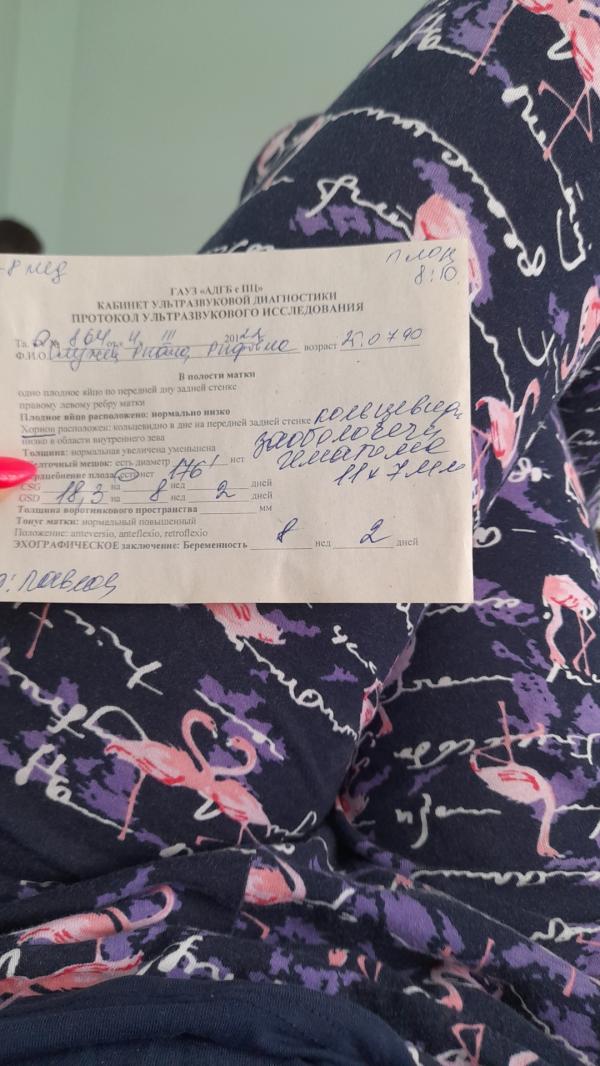 -8 нед
план
8:10
ГАУЗ «АДГБ с ПЦ»
КАБИНЕТ УЛЬТРАЗВУКОВОЙ ДИАГНОСТИКИ
ПРОТОКОЛ УЛЬТРАЗВУКОВОГО ИССЛЕДОВАНИЯ
Та. № 864 от 4 III 2012г
Ф.И.О. возраст 25.07.90
В полости матки
одно плодное яйцо по передней дну задней стенке
правому левому ребру матки
Плодное яйцо расположено: нормально низко
Хорион расположен: кольцевидно в дне на передней задней стенке кольцевидн.
низко в области внутреннего зева заоболочечн
Толщина: нормальная увеличена уменьшена гематома
Желточный мешок: есть диаметр нет 11 х 7 мм
Сердцебиение плода: есть нет 176'
CSG на нед дней
GSD 18,3 на 8 нед 2 дней
Толщина воротникового пространства мм
Тонус матки: нормальный повышенный
Положение: anteversio, anteflexio, retroflexio
ЭХОГРАФИЧЕСКОЕ заключение: Беременность 8 нед 2 дней